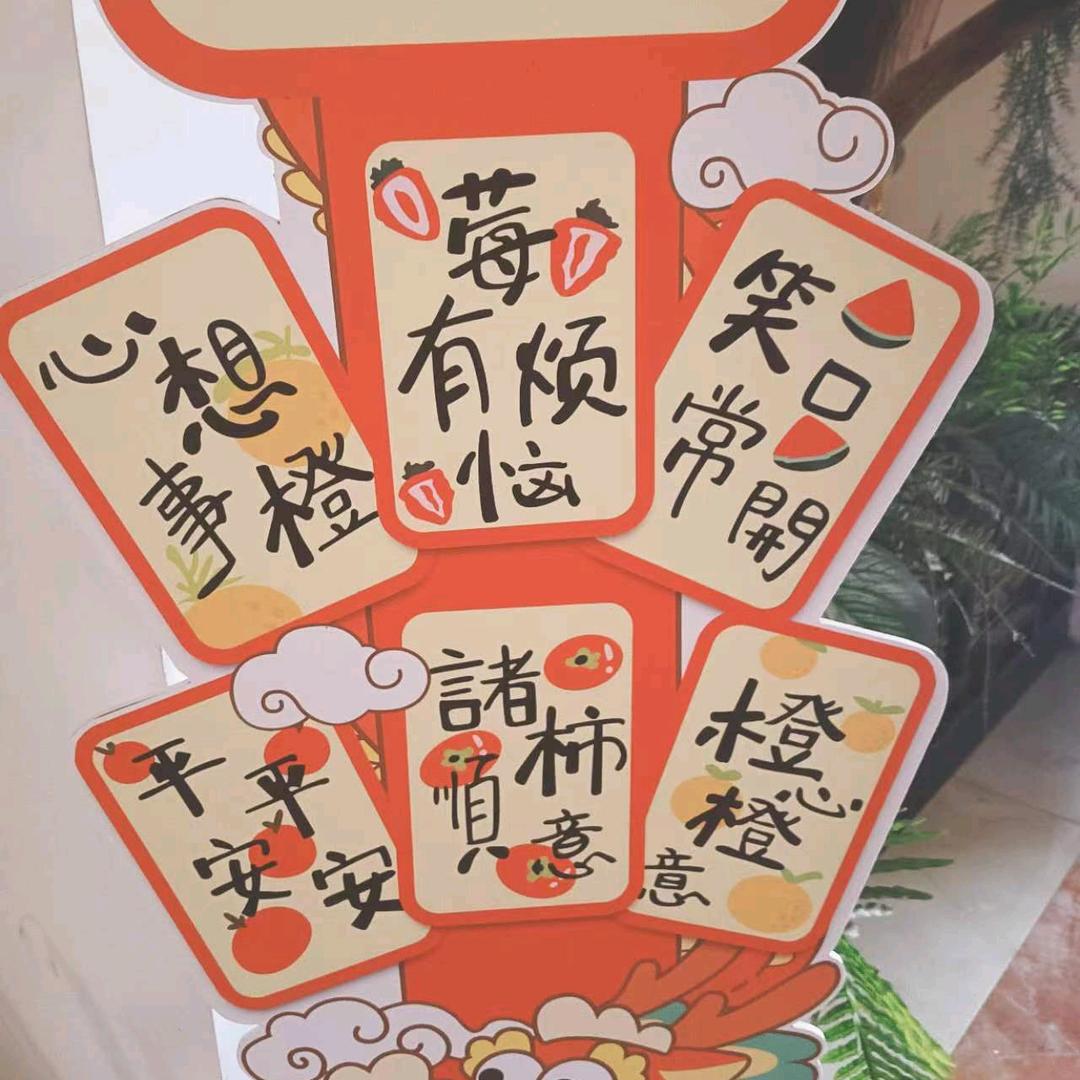 心想
事橙
莓
有烦
恼
笑口
常開
平平
安安
諸柿
順意
橙心
橙意